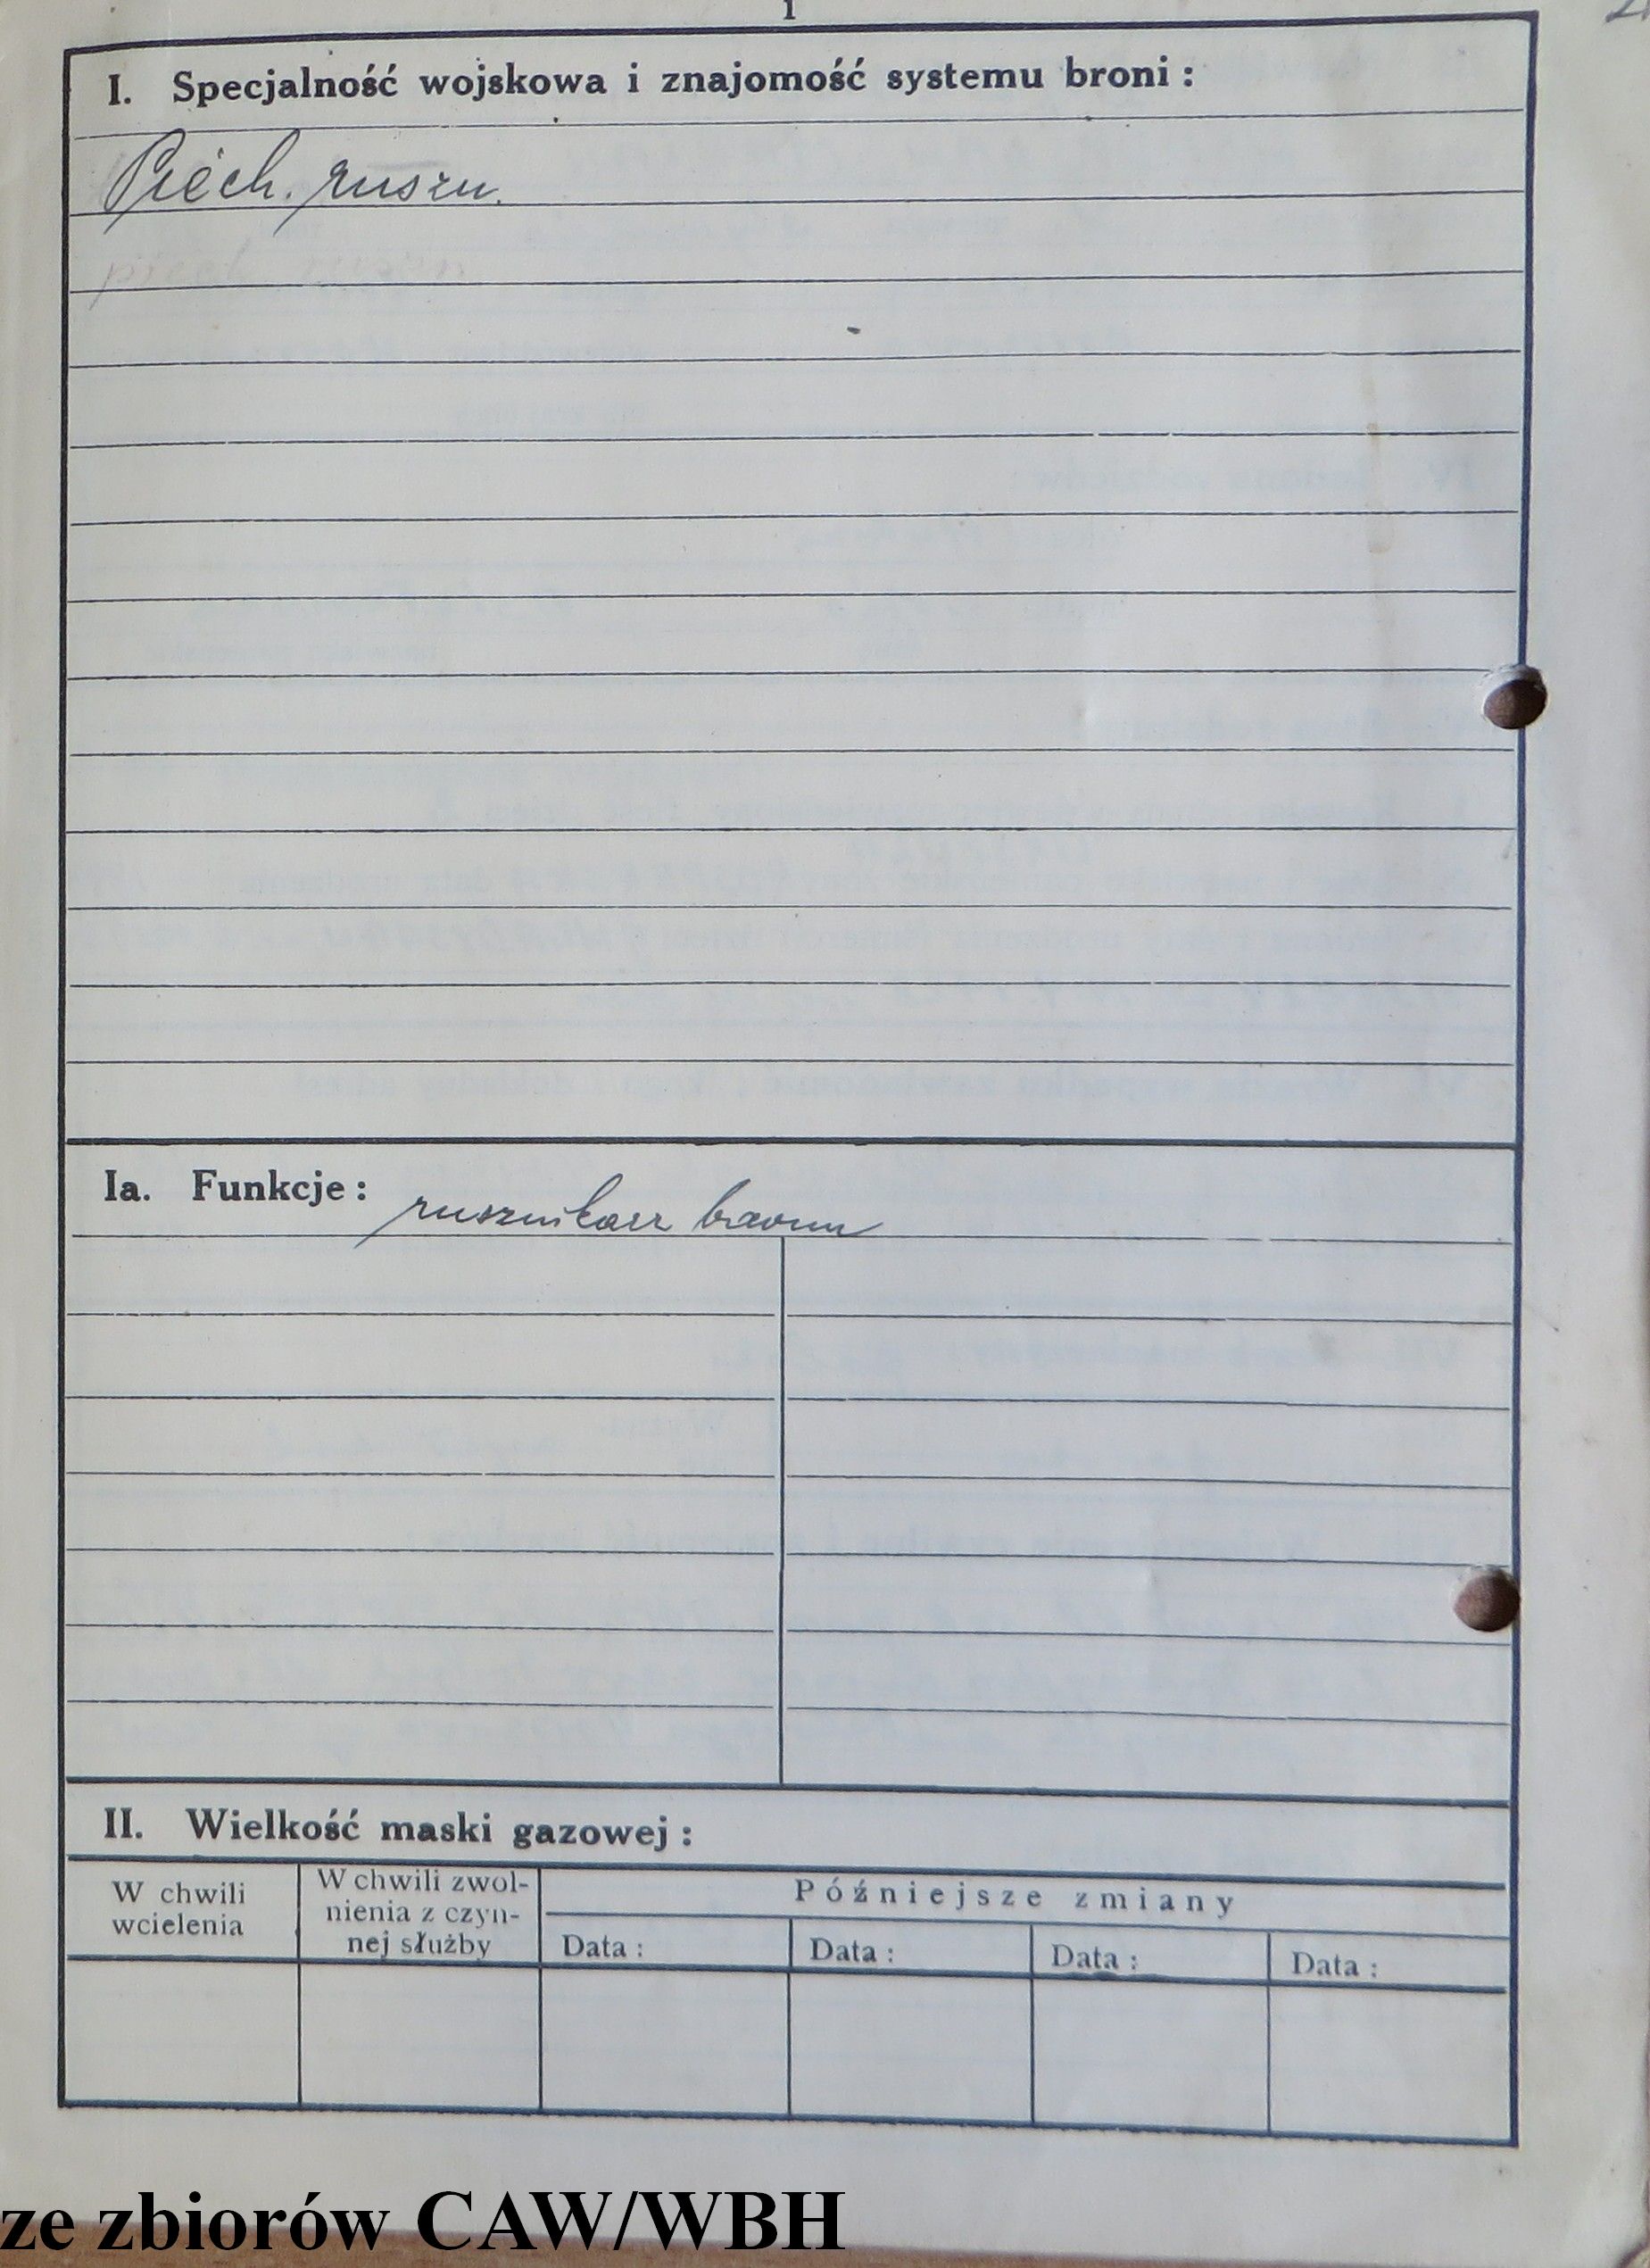 1
I. Specjalność wojskowa i znajomość systemu broni :
Piech. ruszn.
piech ruszn
Ia. Funkcje : rusznikarz broni
II. Wielkość maski gazowej :
W chwili
wcielenia
W chwili zwol-
nienia z czyn-
nej służby
Późniejsze zmiany
Data :
Data :
Data :
Data :
ze zbiorów CAW/WBH